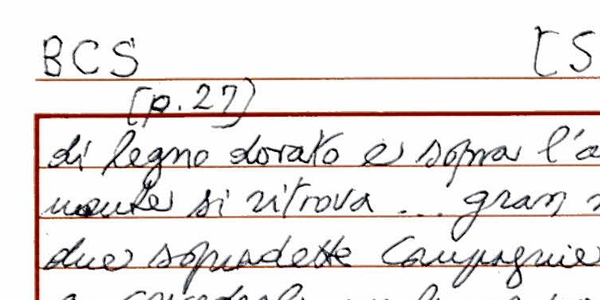 BCS [S
[p. 27]
di legno dorato e sopra l'a
si ritrova ... gran
due sopradette Compagnie